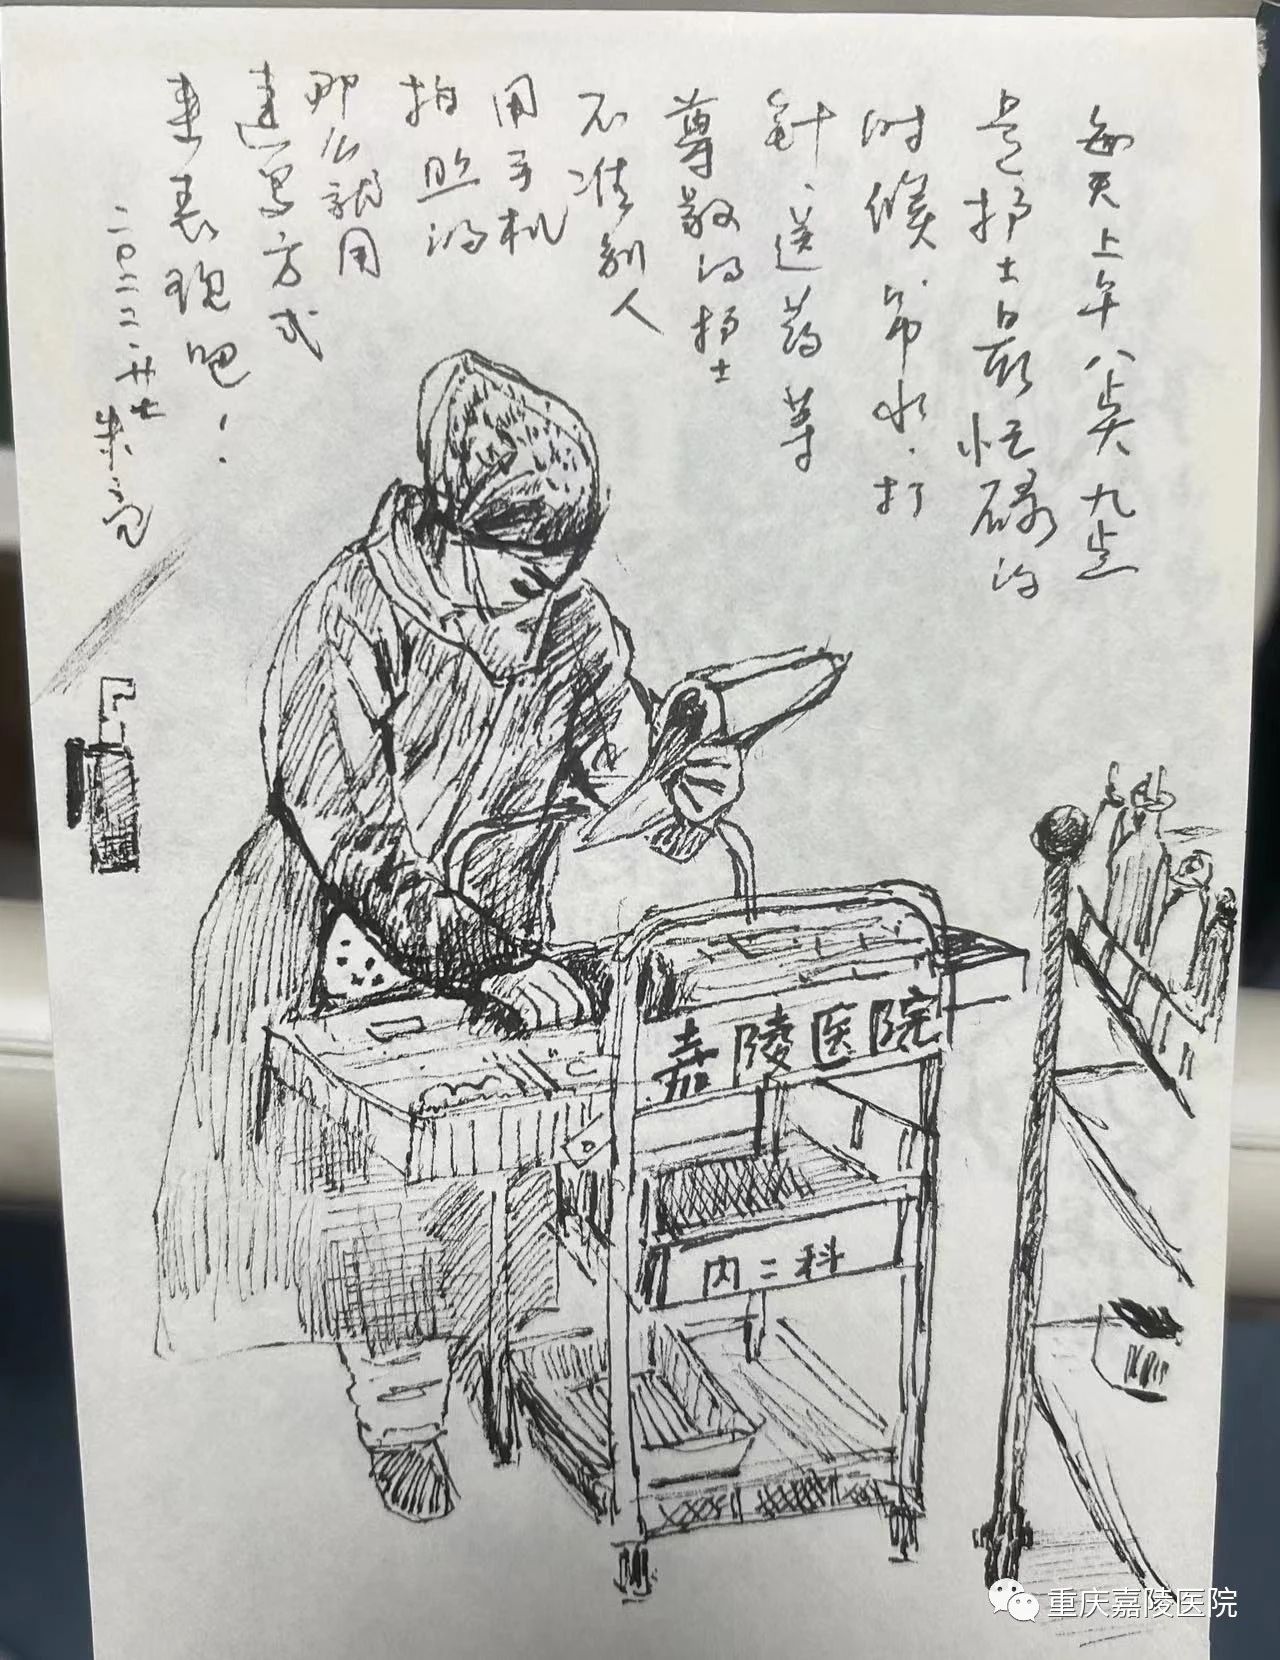 每天上午八点九点
是护士最忙碌的
时候、吊水、打
针、送药等
尊敬的护士
不准别人
用手机
拍照的
那么就用
速写方式
来表现吧！
二〇二二·廿七
朱亮
嘉陵医院
内二科
重庆嘉陵医院